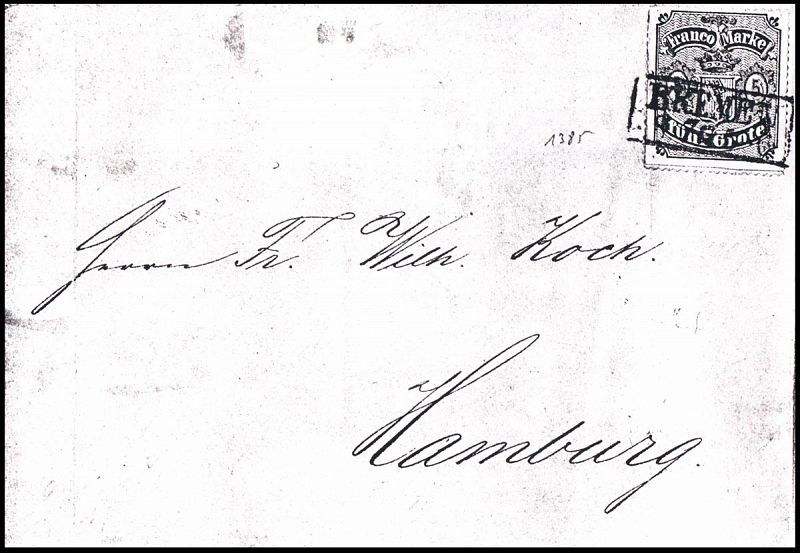 Franco Marke
5
BREMEN
Fünf Grote
1385
Herrn Fr. Wilh. Koch.
Hamburg.